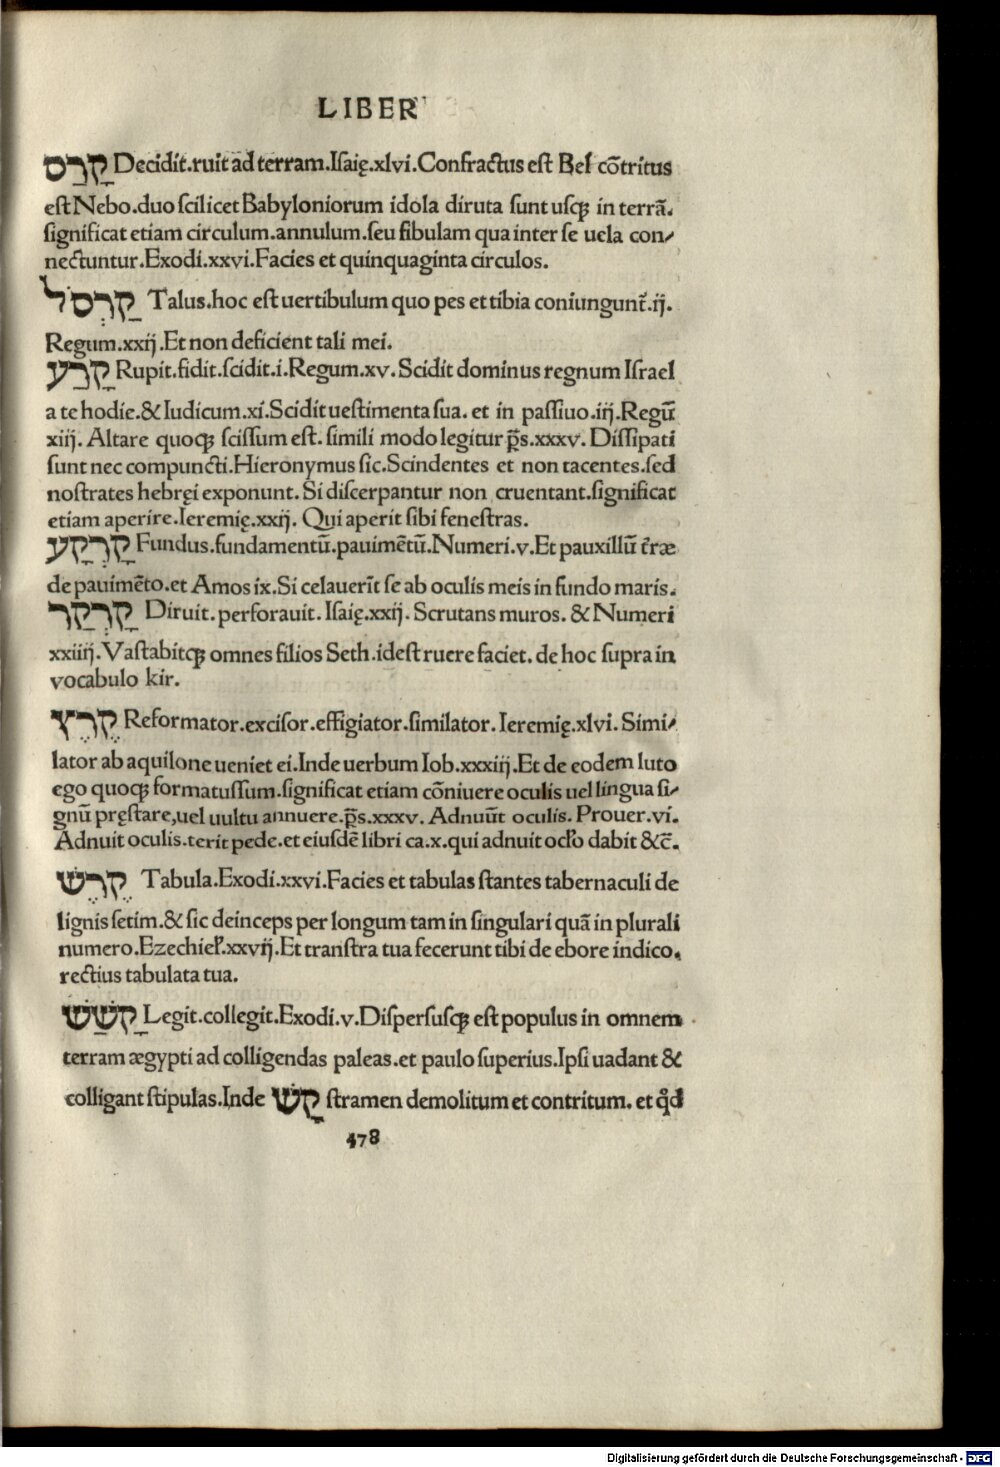 LIBER
קָרַס Decidit.ruit ad terram.Iſaię.xlvi.Confractus eſt Bel cõtritus
eſt Nebo.duo ſcilicet Babyloniorum idola diruta ſunt uſqꝫ in terrã.
ſignificat etiam circulum.annulum.ſeu fibulam qua inter ſe uela con⸗
nectuntur.Exodi.xxvi.Facies et quinquaginta circulos.
קַרְסֹל Talus.hoc eſt uertibulum quo pes et tibia coniungunt᷑.ij.
Regum.xxij.Et non deficient tali mei.
קָרַע Rupit.fidit.ſcidit.i.Regum.xv.Scidit dominus regnum Iſrael
a te hodie.&Iudicum.xi.Scidit ueſtimenta ſua. et in paſſiuo.iij.Regũ
xiij. Altare quoqꝫ ſciſſum eſt. ſimili modo legitur p̃s.xxxv. Diſſipati
ſunt nec compuncti.Hieronymus ſic.Scindentes et non tacentes.ſed
noſtrates hebręi exponunt. Si diſcerpantur non cruentant.ſignificat
etiam aperire.Ieremię.xxij. Qui aperit ſibi feneſtras.
קַרְקַע Fundus.fundamentũ.pauimẽtũ.Numeri.v.Et pauxillũ t᷑ræ
de pauimẽto.et Amos ix.Si celauerĩt ſe ab oculis meis in fundo maris.
קַרְקַר Diruit. perforauit. Iſaię.xxij. Scrutans muros. & Numeri
xxiiij.Vaſtabitqꝫ omnes filios Seth.ideſt ruere faciet. de hoc ſupra in
vocabulo kir.
קֶרֶץ Reformator.exciſor.effigiator.ſimilator. Ieremię.xlvi. Simi⸗
lator ab aquilone ueniet ei.Inde uerbum Iob.xxxiij.Et de eodem luto
ego quoqꝫ formatuſſum.ſignificat etiam cõniuere oculis uel lingua ſi⸗
gnũ pręſtare,uel uultu annuere.p̃s.xxxv. Adnuũt oculis. Prouer.vi.
Adnuit oculis.terit pede.et eiuſdẽ libri ca.x.qui adnuit oclo dabit &c̃.
קֶרֶשׁ Tabula.Exodi.xxvi.Facies et tabulas ſtantes tabernaculi de
lignis ſetim.& ſic deinceps per longum tam in ſingulari quã in plurali
numero.Ezechiel.xxvij.Et tranſtra tua fecerunt tibi de ebore indico.
rectius tabulata tua.
קָשַׁשׁ Legit.collegit.Exodi.v.Diſperſuſqꝫ eſt populus in omnem
terram ægypti ad colligendas paleas.et paulo ſuperius.Ipſi uadant &
colligant ſtipulas.Inde קָשׁ ſtramen demolitum et contritum. et qd̃
478
Digitalisierung gefördert durch die Deutsche Forschungsgemeinschaft - DFG